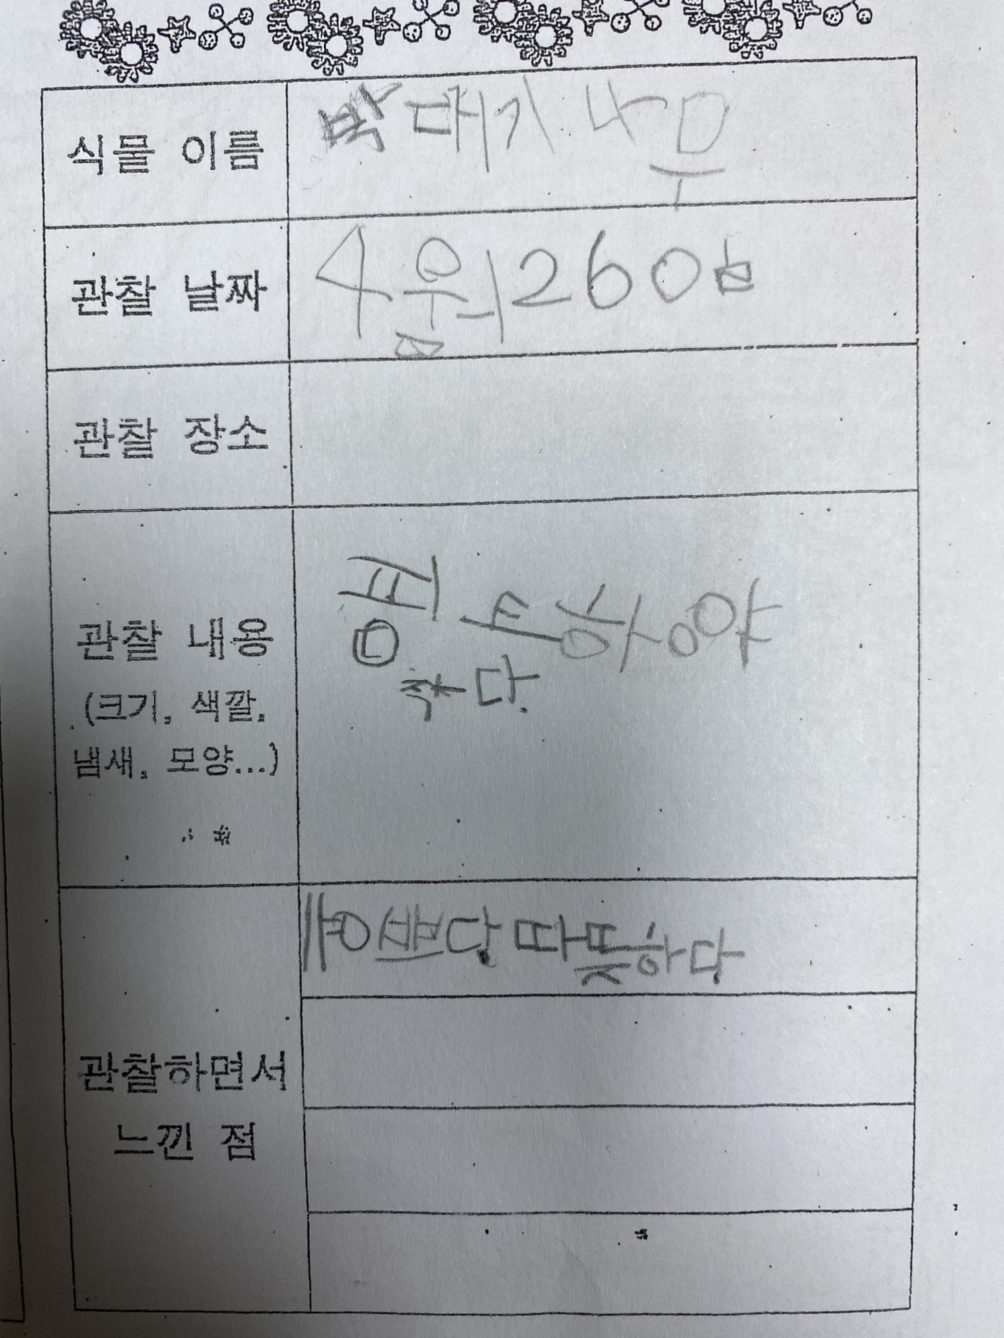 식물 이름
박대기 나무
관찰 날짜
4월 26일
관찰 장소
관찰 내용
(크기, 색깔,
냄새, 모양...)
하양
다.
관찰하면서
느낀 점
예쁘다 따뜻하다